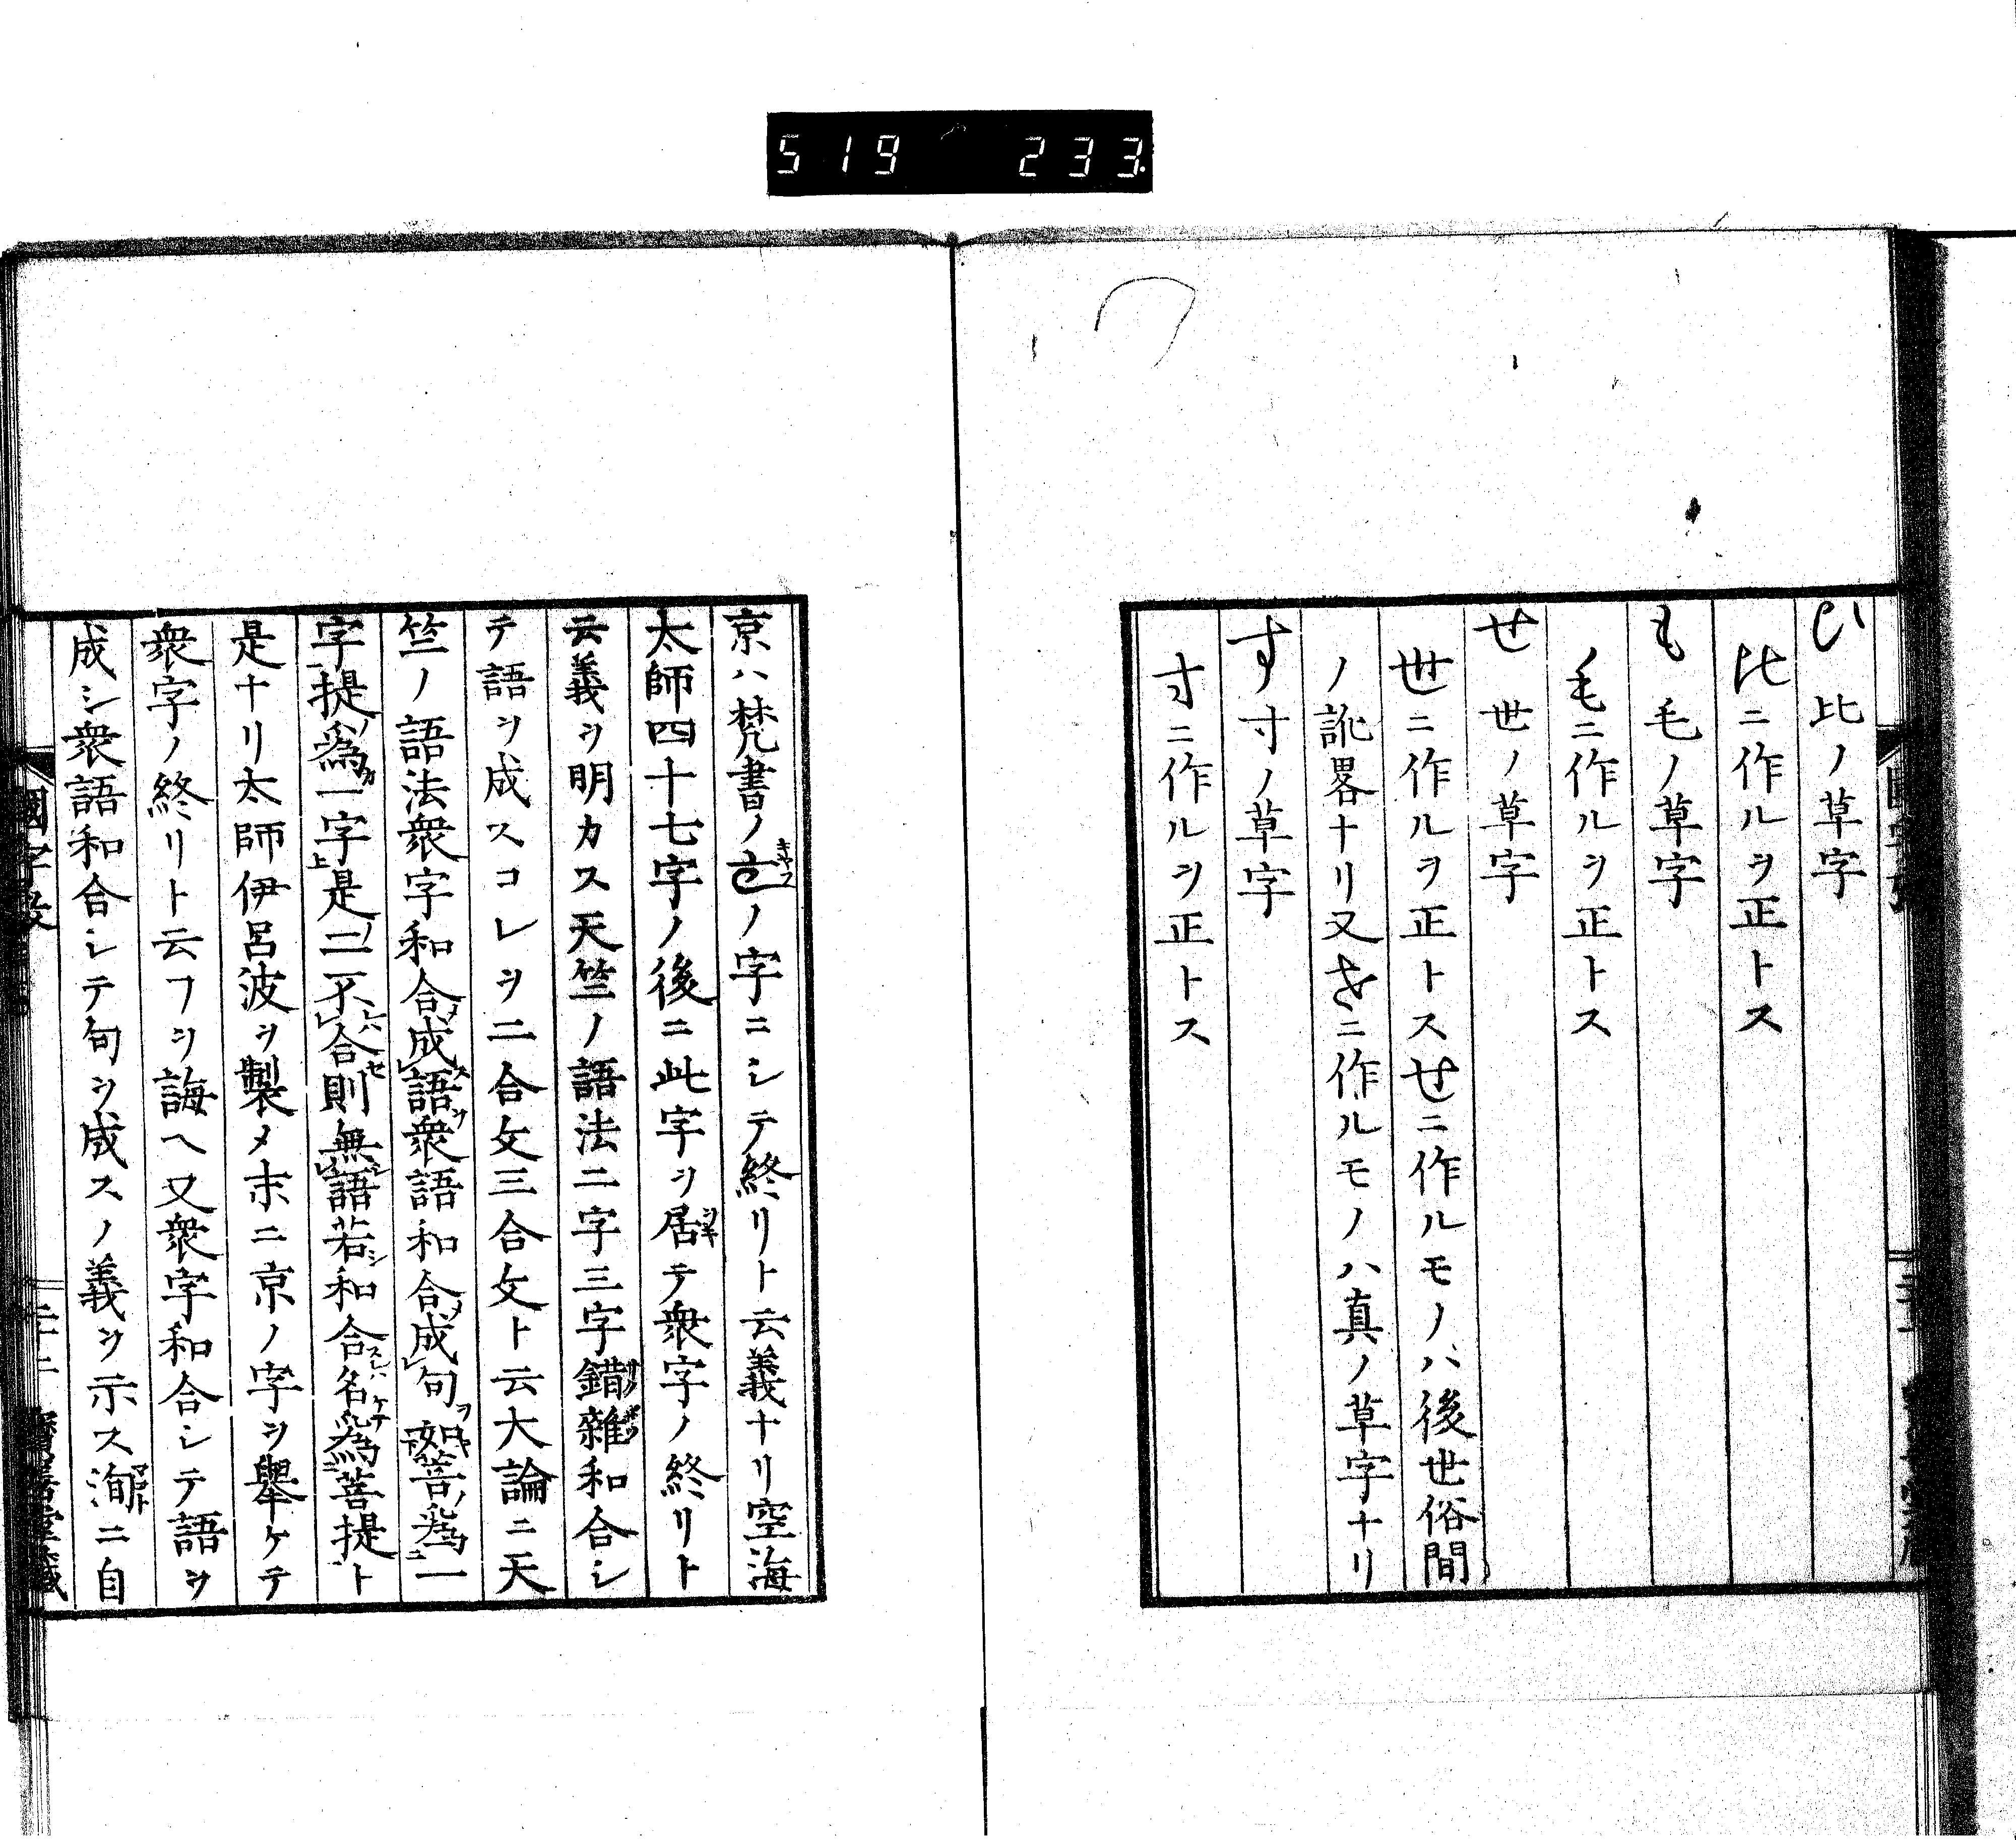 519 233
ひ 比ノ草字
比ニ作ルヲ正トス
も 毛ノ草字
毛ニ作ルヲ正トス
せ 世ノ草字
世ニ作ルヲ正トスせニ作ルモノハ後世俗間
ノ訛畧ナリ又さニ作ルモノハ真ノ草字ナリ
す 寸ノ草字
寸ニ作ルヲ正トス
京ハ梵書ノノ字ニシテ終リト云義ナリ空海
太師四十七字ノ後ニ此字ヲ居テ衆字ノ終リト
云義ヲ明カス天竺ノ語法二字三字錯雜和合シ
テ語ヲ成スコレヲ二合文三合文ト云大論ニ天
竺ノ語法衆字和合成語衆語和合成句如菩為一
字提為一字是二不合則無語若和合名為菩提ト
是ナリ太師伊呂波ヲ製メ末ニ京ノ字ヲ舉ケテ
衆字ノ終リト云フヲ誨ヘ又衆字和合シテ語ヲ
成シ衆語和合シテ句ヲ成スノ義ヲ示ス洵ニ自
國字
二十二